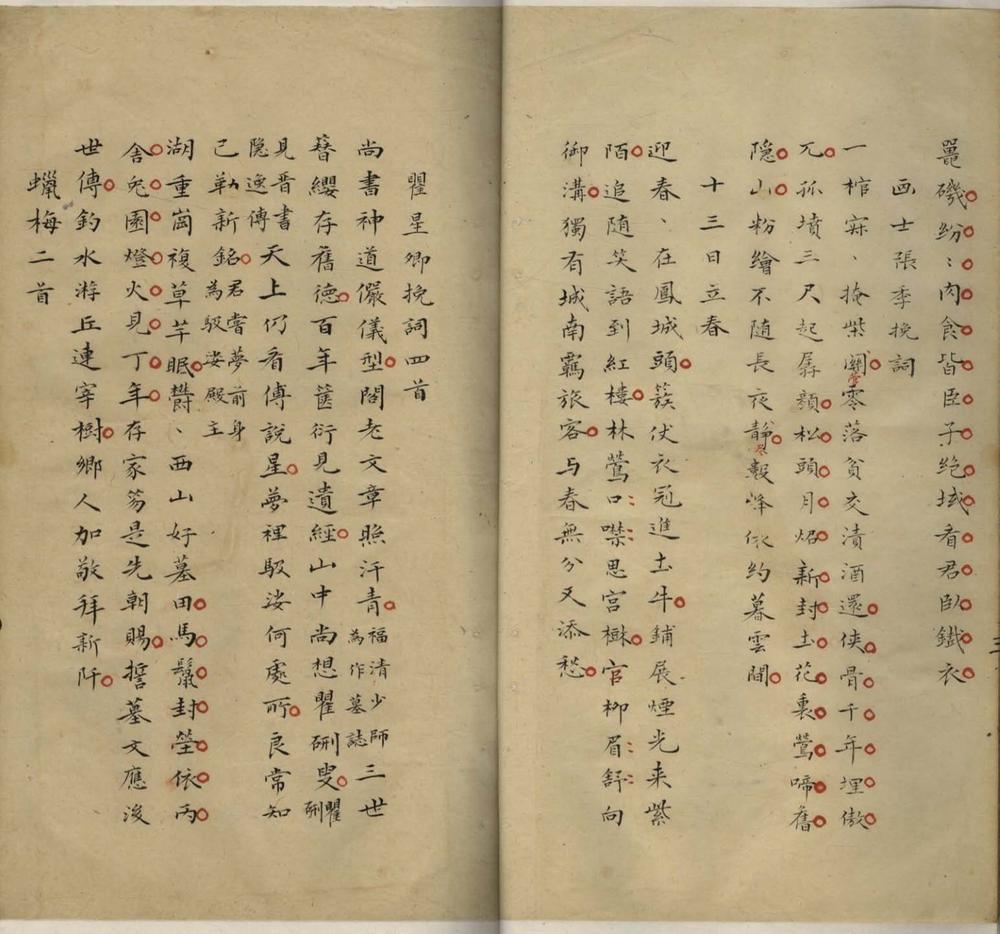 鼉磯紛〻肉食皆臣子絶域看君臥鐵衣
画士張季挽詞
一棺寂〻掩柴關零落貧交漬酒還俠骨千年埋傲
兀孤墳三尺起孱顔松頭月炤新封土花裏鶯啼舊
隠山粉繪不随長夜静數峰依約暮雲間
十三日立春
迎春〻在鳳城頭簇仗衣冠進土牛鋪展煙光来紫
陌追随笑語到紅樓林鶯口噤思宫樹官柳眉舒向
御溝獨有城南羈旅客与春無分又添愁
瞿星卿挽詞四首
尚書神道儼儀型閣老文章照汗青福清少師為作墓誌三世
簪纓存舊德百年篋衍見遺經山中尚想瞿硎叟瞿硎
見晋書隠逸傳天上仍看傅說星夢裡馭娑何處所良常知
已勒新銘君嘗夢前身為馭娑殿主
湖重崗複草芊眠欝〻西山好墓田馬鬛封塋依丙
舎兔園燈火見丁年存家笏是先朝賜誓墓文應後
世傳釣水游丘連宰樹鄉人加敬拜新阡
蠟梅二首